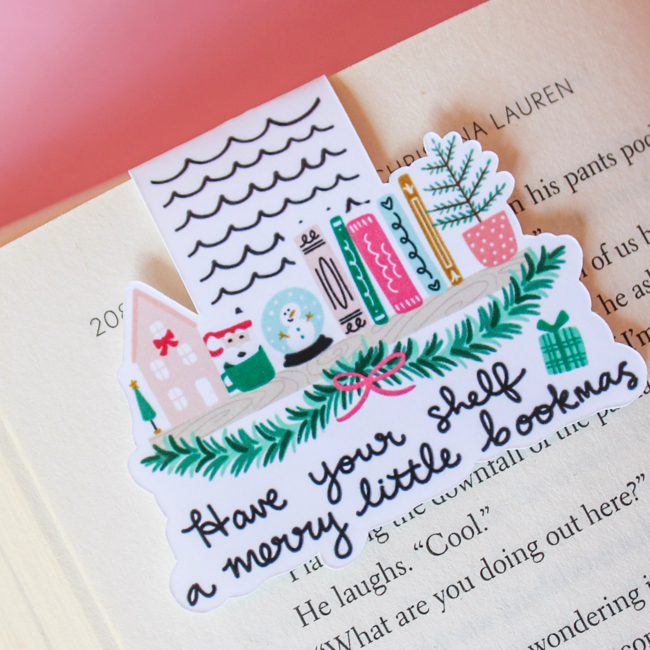 208
CHRISTINA LAUREN
his pants poc
of us h
he as
I'm
Have your shelf
a merry little bookmas
the downfall of the pa
He laughs. "Cool."
"What are you doing out here?"
wondering i